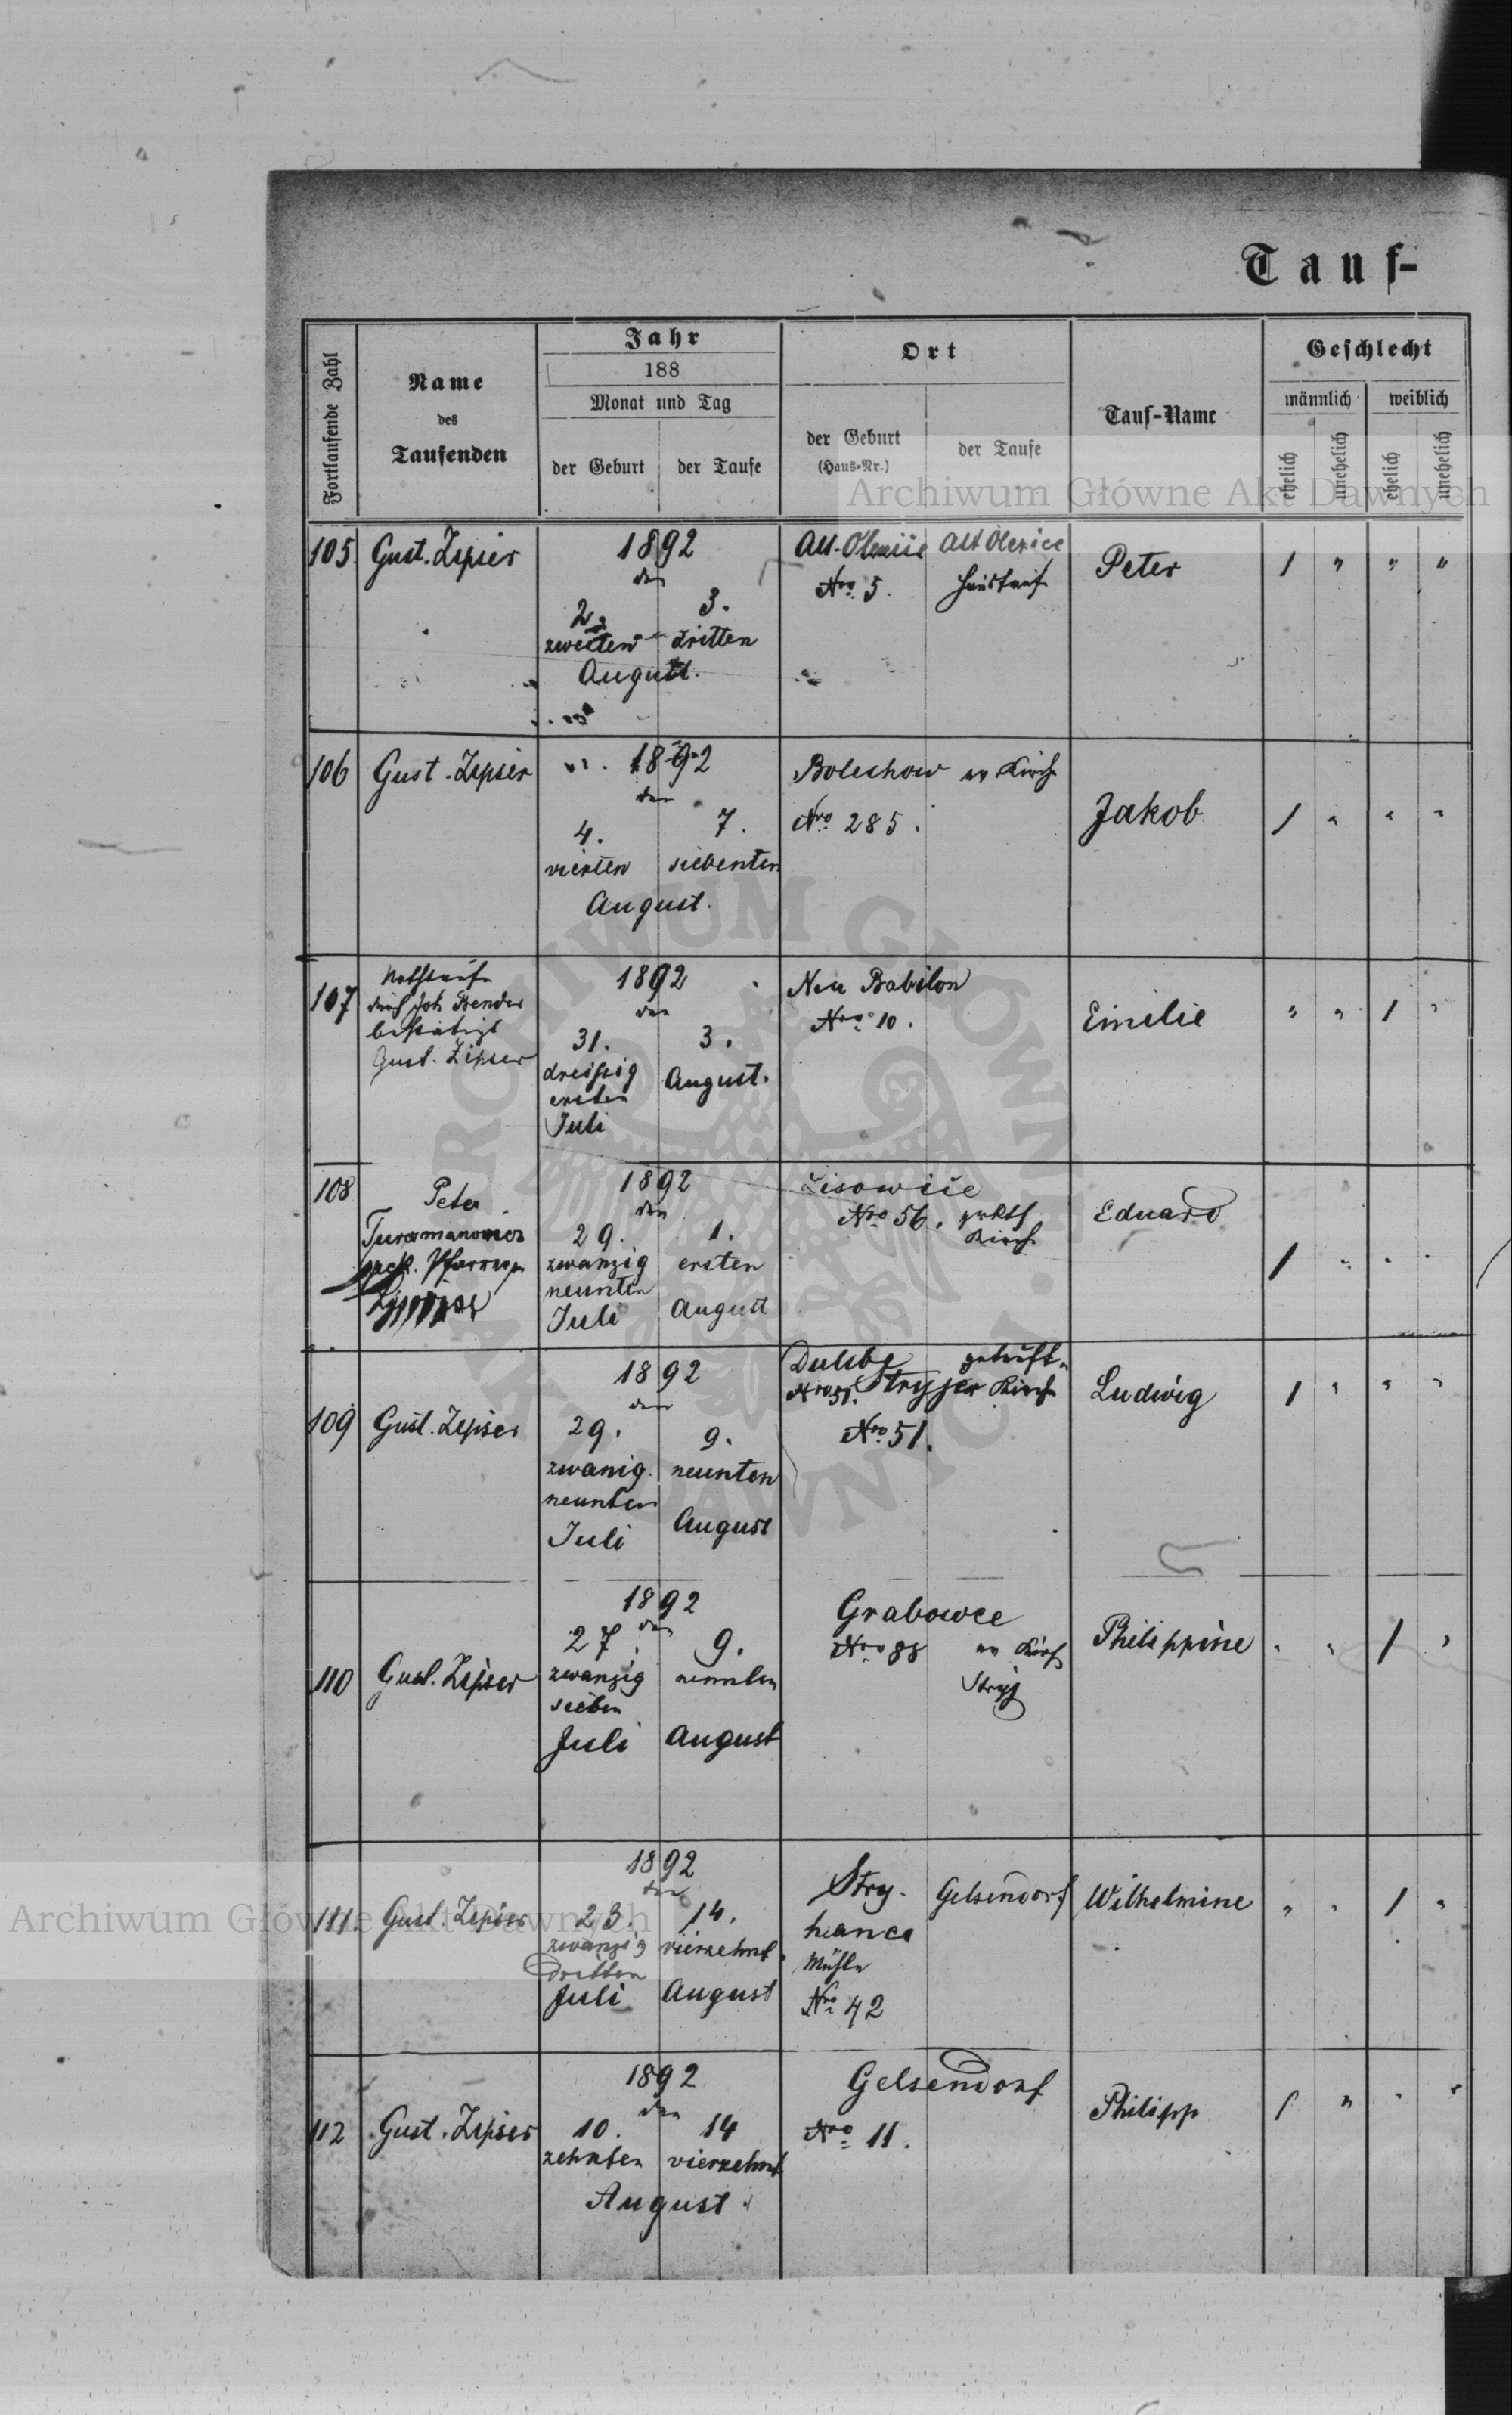 Tauf-
Fortlaufende Zahl
Name
des
Taufenden
Jahr
188
Monat und Tag
der Geburt
der Taufe
Ort
der Geburt
(Haus-Nr.)
der Taufe
Tauf-Name
Geschlecht
männlich
weiblich
ehelich
unehelich
ehelich
unehelich
Archiwum Główne Akt Dawnych
105. Gust. Zipser
1892
den
2. 3.
zweiten dritten
August.
Alt-Olexice Alt Olexice
Nro. 5.
Peter 1 " " "
106 Gust. Zipser
1892
den
4. 7.
vierten siebenten
August.
Bolechow
Nro 285.
Jakob 1 " " "
107 Nothtaufe
durch Joh. Bender
bestätigt
Gust. Zipser
1892
den
31. 3.
dreißig August.
ersten
Juli
Neu Babilon
Nro. 10.
Emilie " " 1 "
108 Peter
1892
den
29. 1.
zwanzig ersten
neunten
Juli August
Lisowice
Nro 56.
Kirch
Eduard
1 " "
109 Gust. Zipser
1892
den
29. 9.
zwanzig. neunten
neunten
Juli August
Dulibe getauft
Nro 51. Stryjer Kirch
Nro. 51.
Ludwig 1 " " "
110 Gust. Zipser
1892
den
27. 9.
zwanzig neunten
sieben
Juli August
Grabowce
Nro 88
Kirch
Stryj
Philippine " " 1 "
111. Gust. Zipser
1892
den
23. 14.
zwanzig vierzehnt.
dritten
Juli August
Stry- Gelsendorf
hanca
Mühle
Nro 42
Wilhelmine " " 1 "
112 Gust. Zipser
1892
den
10. 14
zehnten vierzehnt
August.
Gelsendorf
Nro 11.
Philipp 1 " " "
ARCHIWUM GŁÓWNE AKT DAWNYCH
Archiwum Główne Akt Dawnych